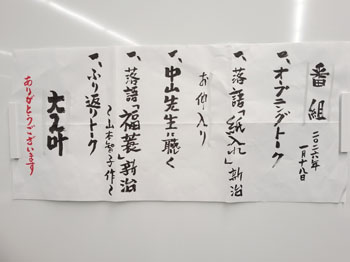 番組
二〇二六年
一月十八日
一、オープニングトーク
一、落語「紙入れ」新治
お仲入り
一、中山先生に聴く
一、落語「福蓑」新治
〜山本智子作〜
一、ふり返りトーク
大入叶
ありがとうございます